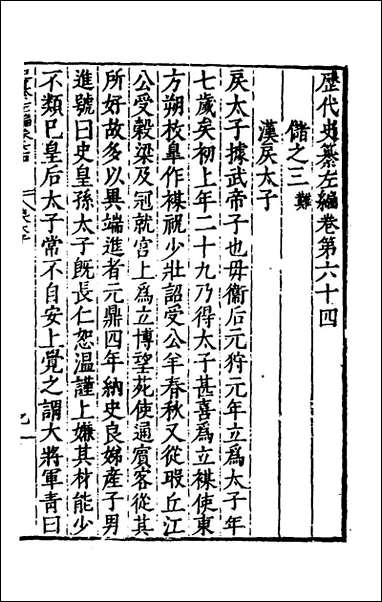 歷代史纂左編卷第六十四
儲之三 難
漢戾太子
戾太子據武帝子也母衞后元狩元年立爲太子年
七歲矣初上年二十九乃得太子甚喜爲立禖使東
方朔枚臯作禖祝少壯詔受公羊春秋又從瑕丘江
公受榖梁及冠就宮上爲立博望苑使通賓客從其
所好故多以異端進者元鼎四年納史良娣產子男
進號曰史皇孫太子旣長仁恕温謹上嫌其材能少
不類巳皇后太子常不自安上覺之謂大將軍青曰